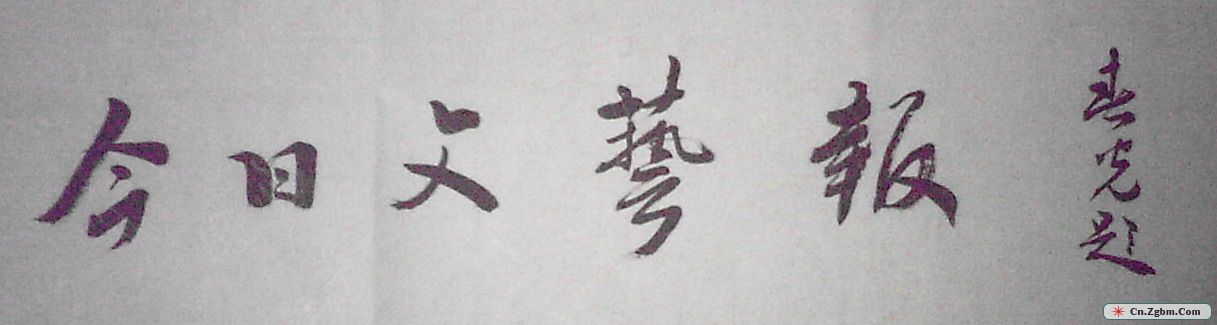 今日文藝報
春光題
Cn.Zgbm.Com